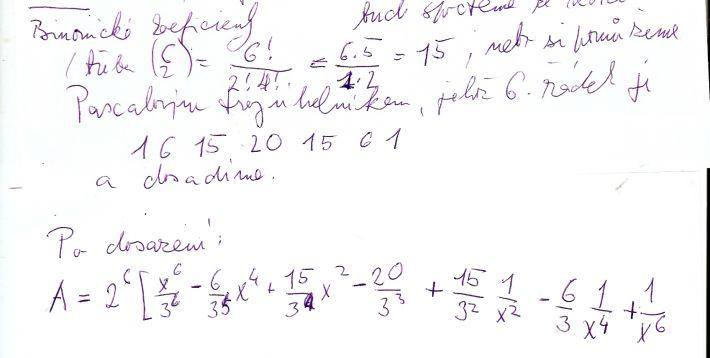 Binomické koeficienty buď spočteme
(třeba (6 2) = 6!/(2! 4!) = 6.5/(1.2) = 15, nebo si pomůžeme
Pascalovým trojúhelníkem, jehož 6. řádek je
1 6 15 20 15 6 1
a dosadíme.
Po dosazení:
A = 2^6 [ x^6/3^6 - 6/3^5 x^4 + 15/3^4 x^2 - 20/3^3 + 15/3^2 1/x^2 - 6/3 1/x^4 + 1/x^6